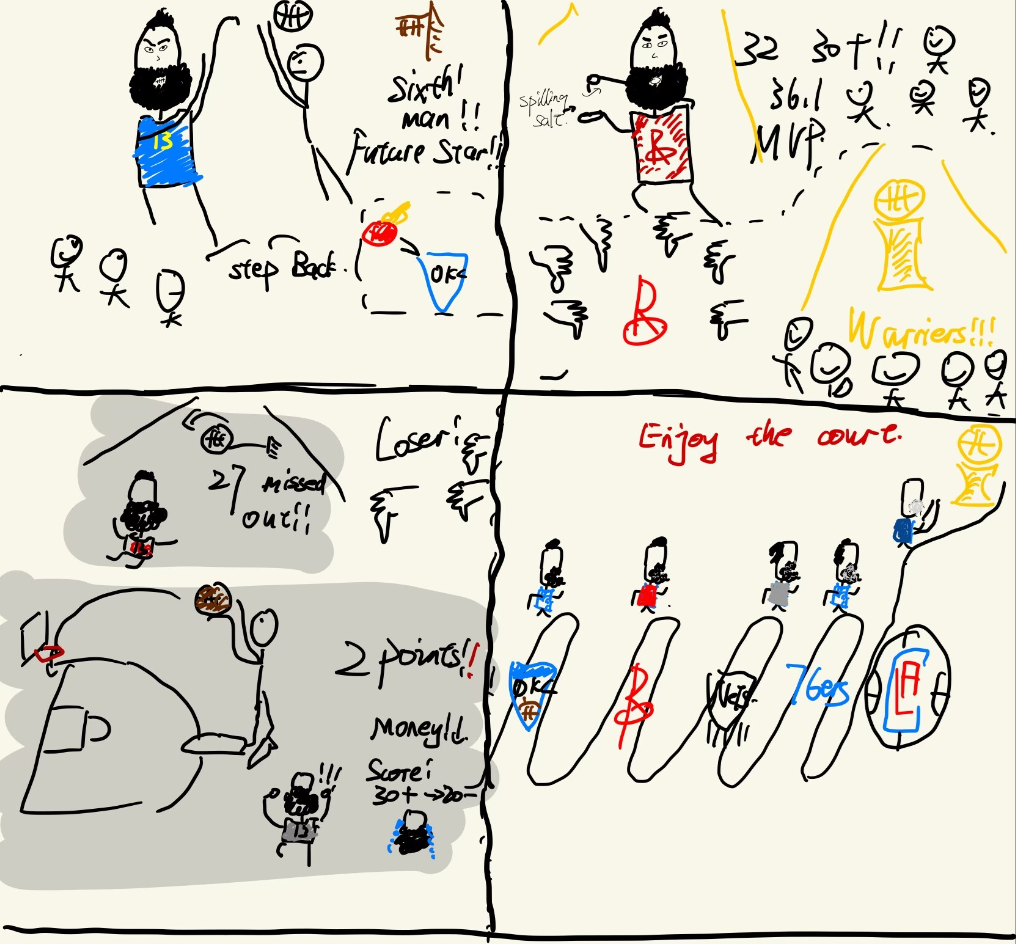 Sixth!
man!!
Future Star!!
13
step Back.
OKC
spilling
salt.
R
32 30+!!
36.1
MVP
R
Warriers!!!
Loser!
27 missed
out!!
13
2 points!!
Money!!
Score!
30+ → 20-
!!!
13
Enjoy the court.
OKC
R
Nets
76ers
LA